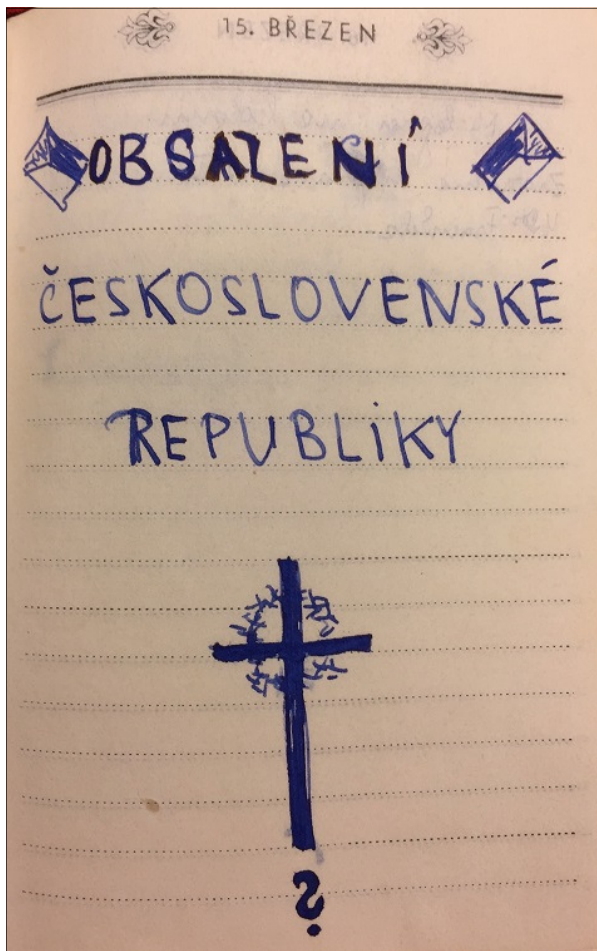 15. BŘEZEN
OBSAZENÍ
ČESKOSLOVENSKÉ
REPUBLIKY
?